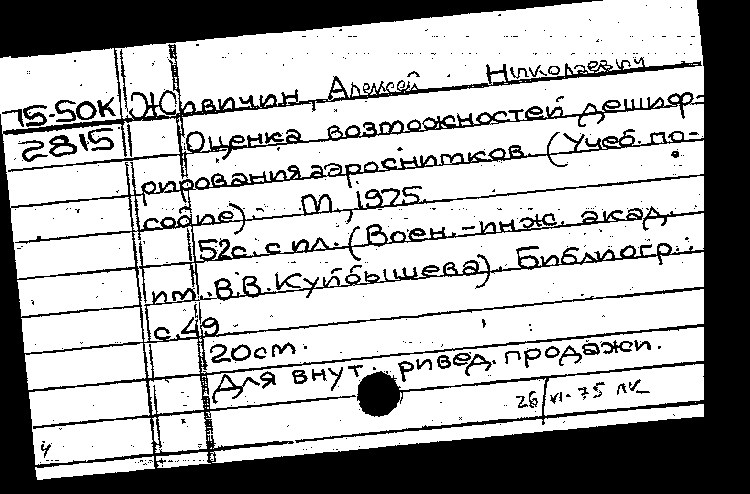 75-50К Живичин, Алексей Николаевич
2815 Оценка возможностей дешиф-
рирования аэроснимков. (Учеб. по-
собие). М., 1975.
52с. с ил. (Воен.-инж. акад.
им. В.В. Куйбышева). Библиогр.:
с.49
20см.
Для внут. ривед. продажи.
26/VI-75 ЛК
4